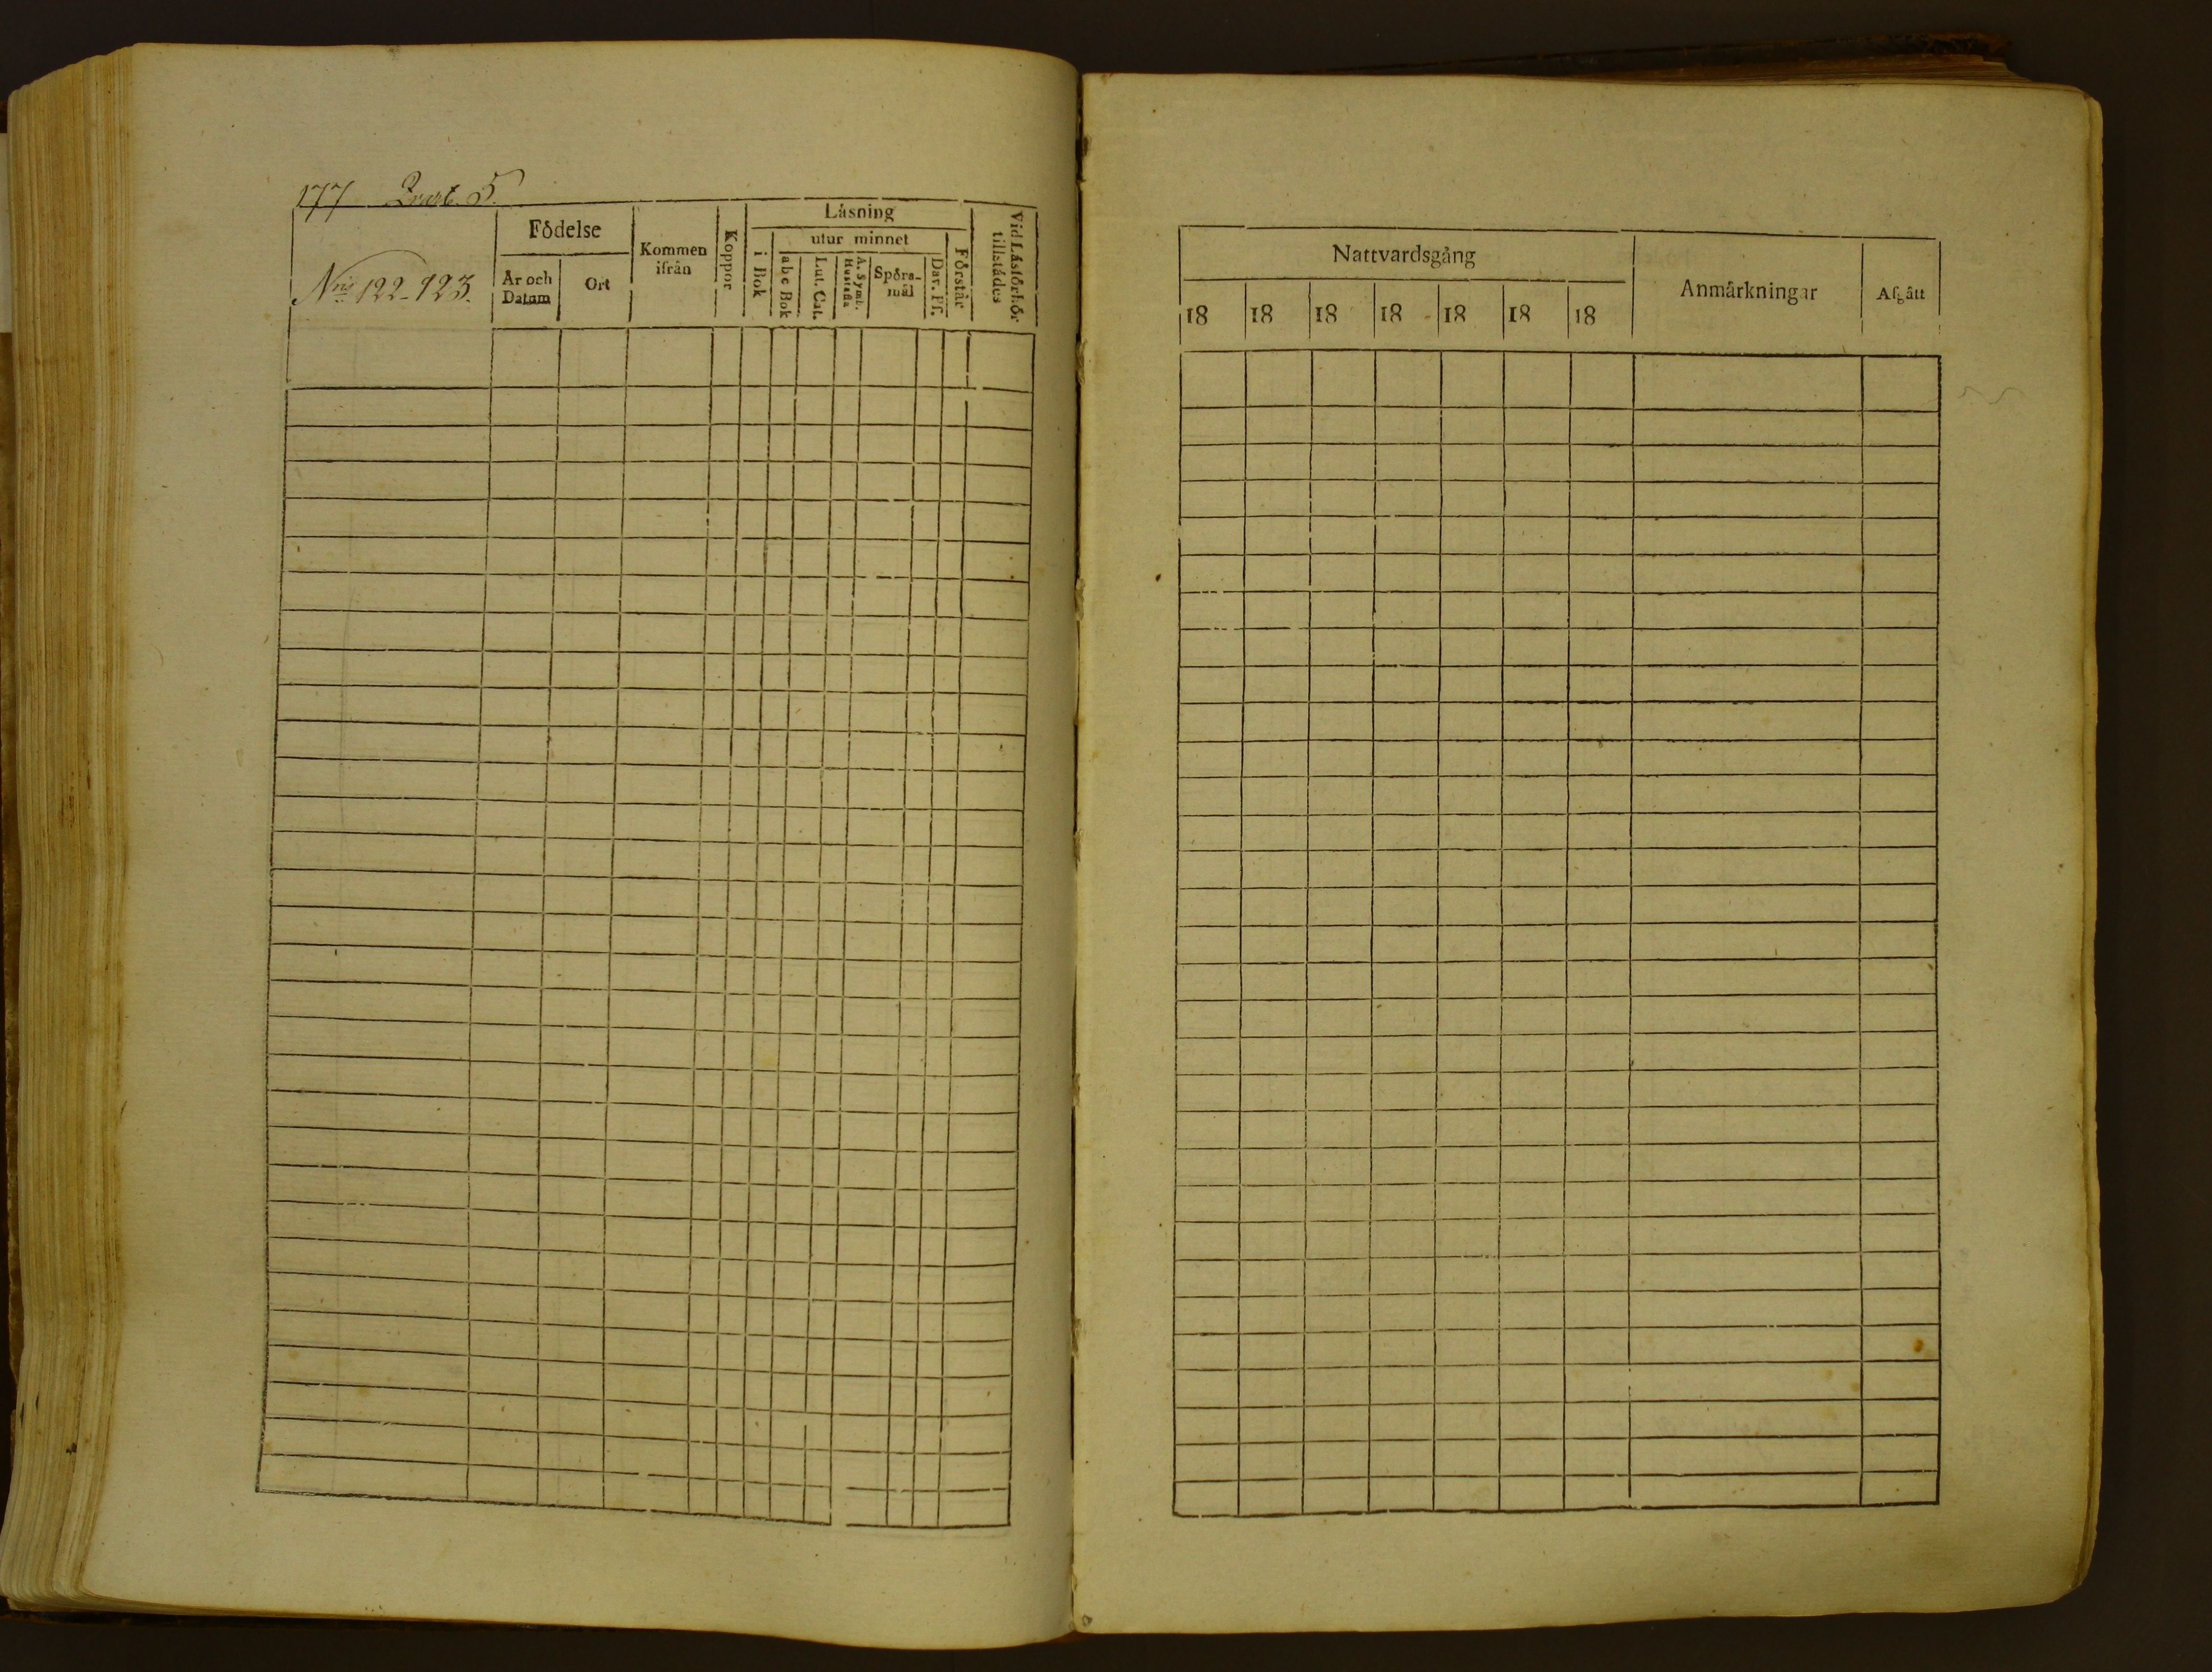 177 Qvart. 5.
Nris 122-123.
Födelse
År och Datum
Ort
Kommen ifrån
Koppor
Läsning
i Bok
utur minnet
abc Bok
Lut. Cat.
A. Symb. Hustafla
Spörsmål
Dav. Ps.
Förstår
Vid Läsförhör tillstädes
Nattvardsgång
18 18 18 18 18 18 18
Anmärkningar
Afgått